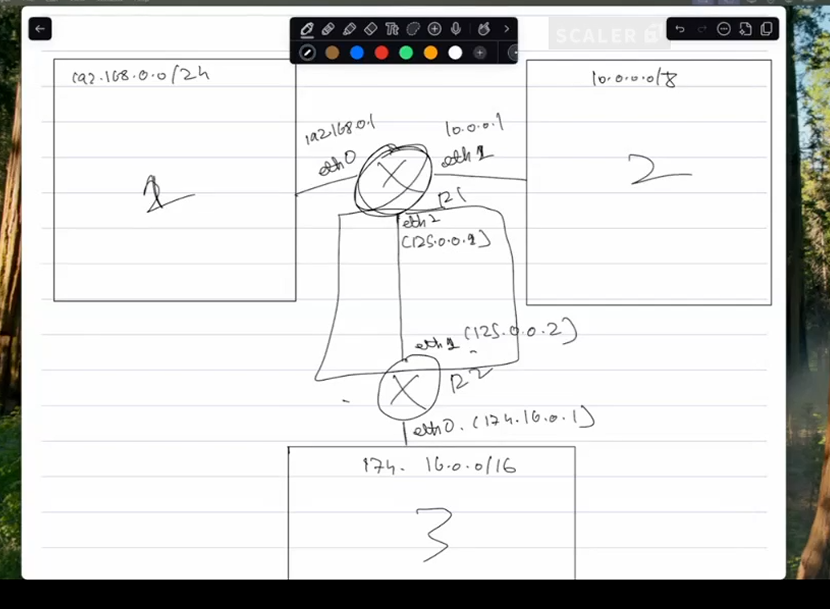 SCALER
192.168.0.0/24
10.0.0.0/8
192.168.0.1
10.0.0.1
eth0
eth1
1
X
2
R1
eth2
(125.0.0.1)
eth1 (125.0.0.2)
X
R2
eth0. (174.16.0.1)
174. 16.0.0/16
3